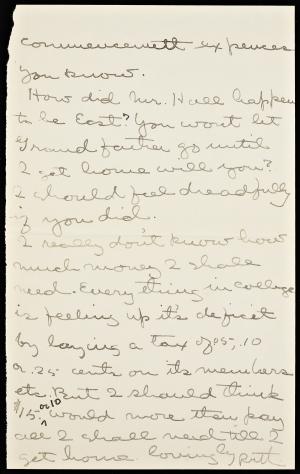 commencement expences
you know.
How did Mr. Hall happen
to be East? You wont let
grand father go until
I get home will you?
I should feel dreadfully
if you did.
I really don't know how
much money I shall
need. Everything in college
is feeling up it's deficit
by laying a tax of .05, .10
or .25 cents on its members
etc. But I should think
$15 or 10 would more than pay
all I shall need till I
get home. lovingly Ruth